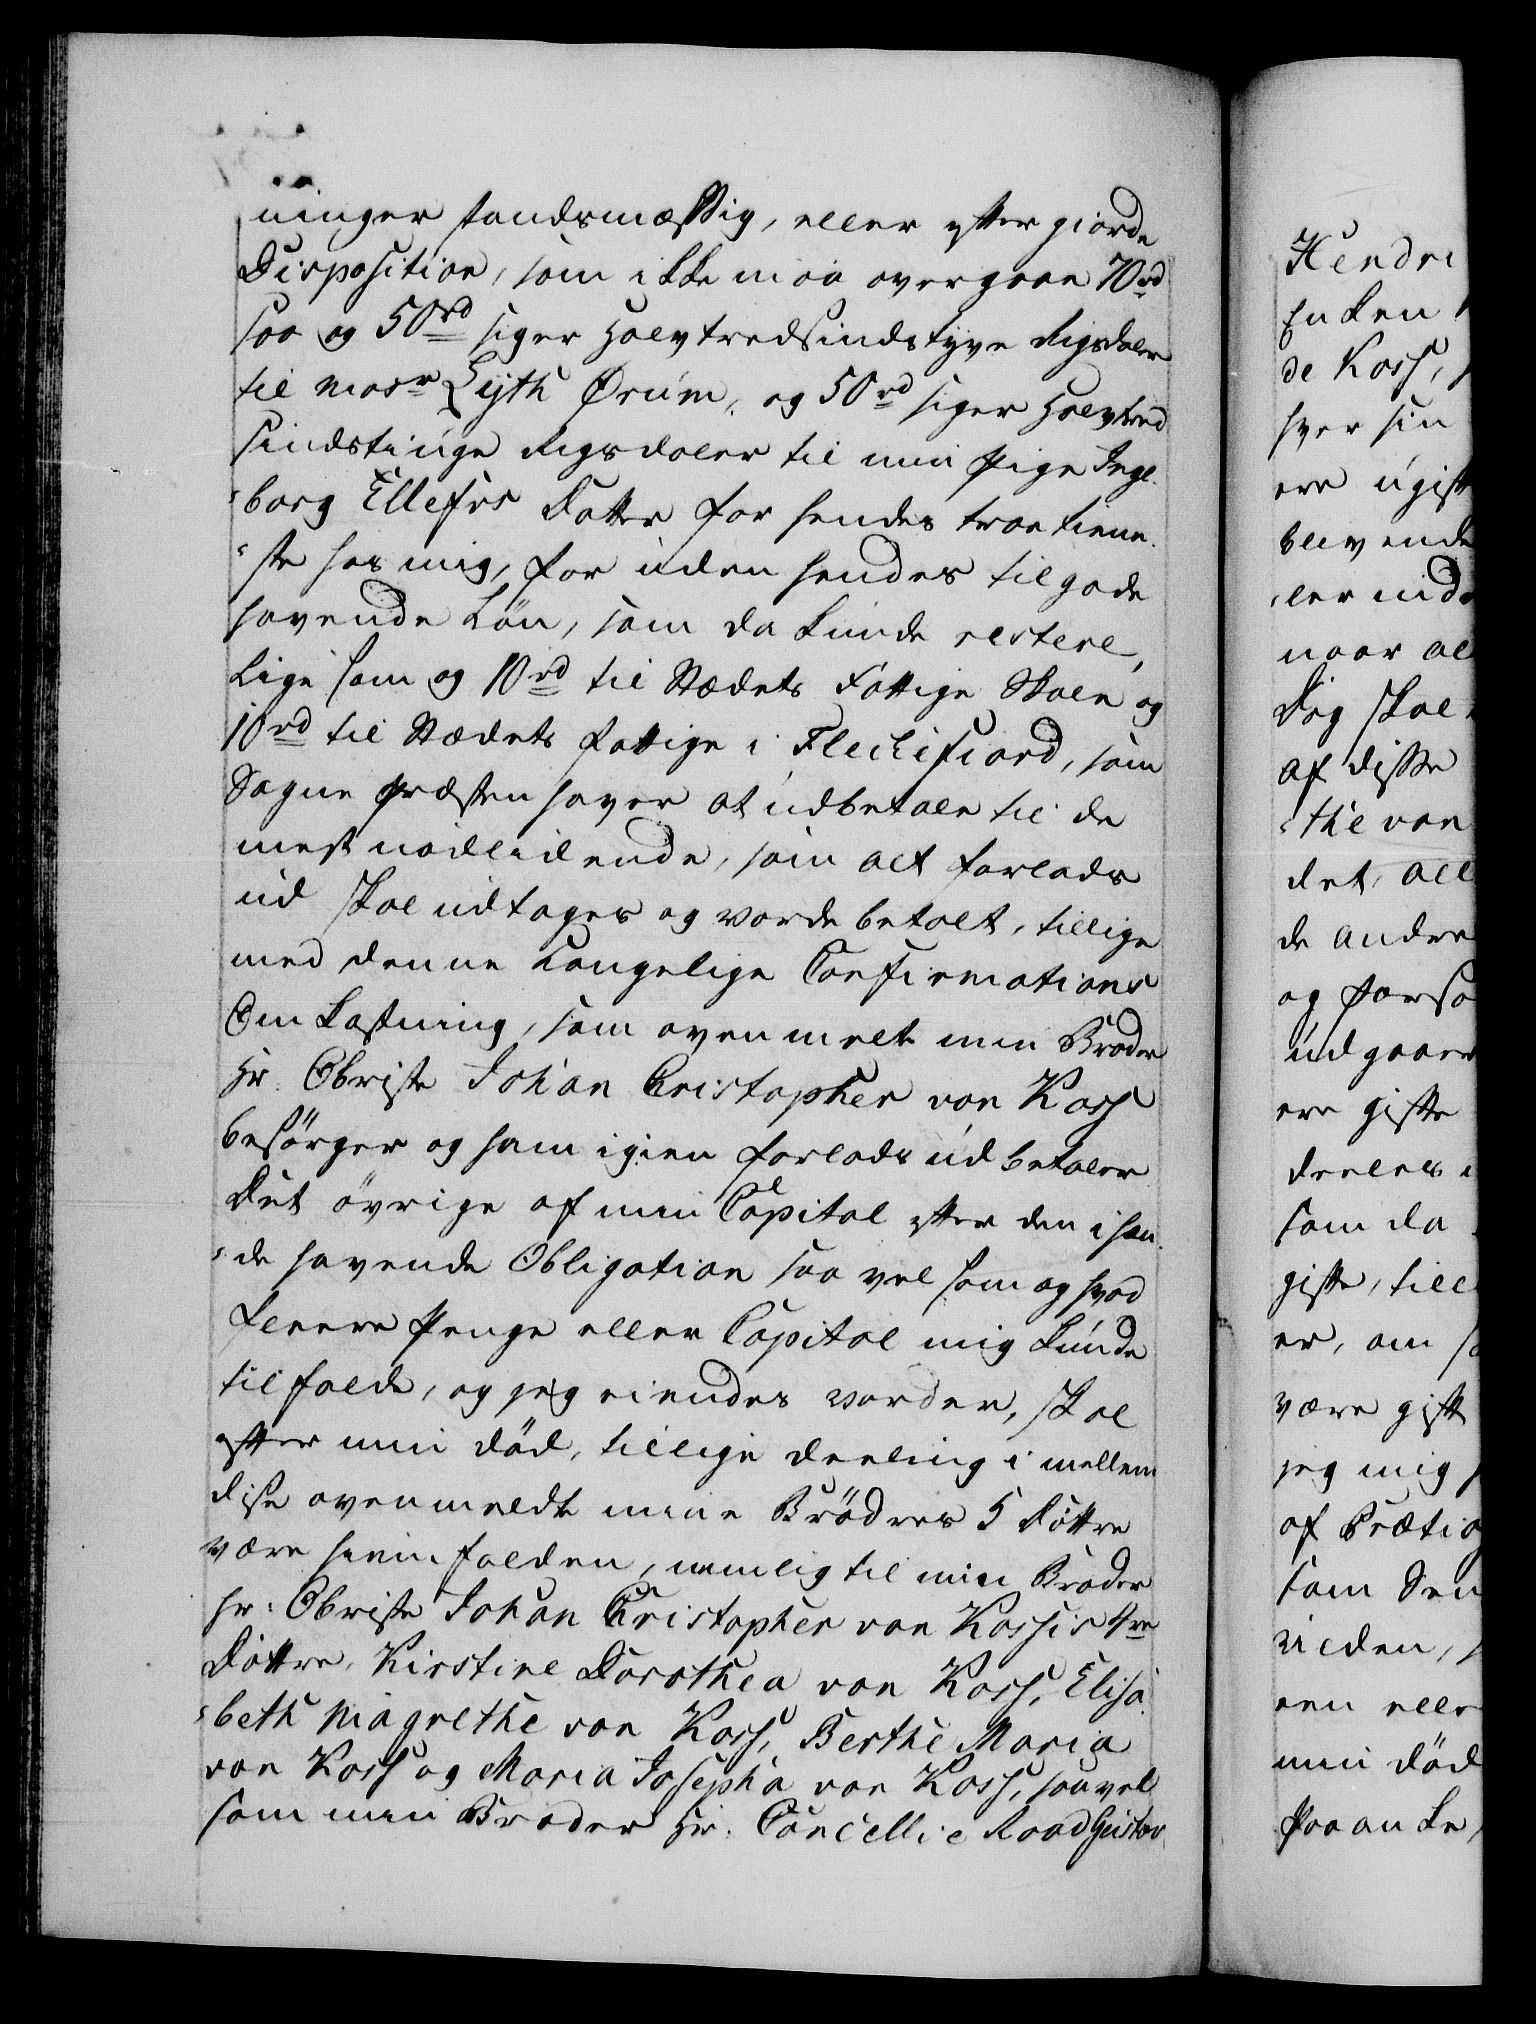 ninger standsmæssig, eller efter giorde
Disposition, som ikke maa overgaae 70 rd
saa og 50 rd siger halvtredsindstyve Rigsdaler
til Mosr Lyth Ørum, og 50 rd siger halvtred
sindstiuge Rigsdaler til min Pige Inge-
borg Ellefs Datter for hendes troe tiene-
ste hos mig, for uden hendes tilgode
havende Løn, som da kunde restere,
lige som og 10 rd til Stædets Fattige Skole og
10 rd til Stædets fattige i Flechifiord, som
Sogne Præsten haver at udbetale til de
mest nødlidende, som alt forlods
ud skal udtages og vorde betalt, tillige
med denne Kongelige Confirmations
Omkostning, som ovenmelt min Broder
Hr. Obriste Johan Christopher von Koss
besørger og ham igien forlods udbetaler
Det øvrige af min Capital efter den i hæn-
de havende Obligation saa vel som og hvad
fleere Penge eller Capital mig kunde
tilfalde, og jeg eiendes vorder, skal
efter min Død, til lige deeling i mellem
disse ovenmeldte mine Brødres 5 Døttre
være hiemfalden, nemlig til min Broder
Hr. Obriste Johan Christopher von Kosses 4re
Døttre, Kirstine Dorothea von Koss, Elisa-
beth Magrethe von Koss, Berthe Maria
von Koss og Maria Josepha von Koss, saavel
som min Broder Hr. Cancellie Raad Gustav
Hendri
Enken
de Koss,
hver sin
ere ugift
blivende
ler nid
naar al
Dog skal
af disse
the von
det, all
de andre
og forso
udgaaer
ere gifte
deeles
som da
gifte, till
er, om
være gift
jeg mig
af Prætio
som Sen
vieden,
een eller
min Død
Paaanke